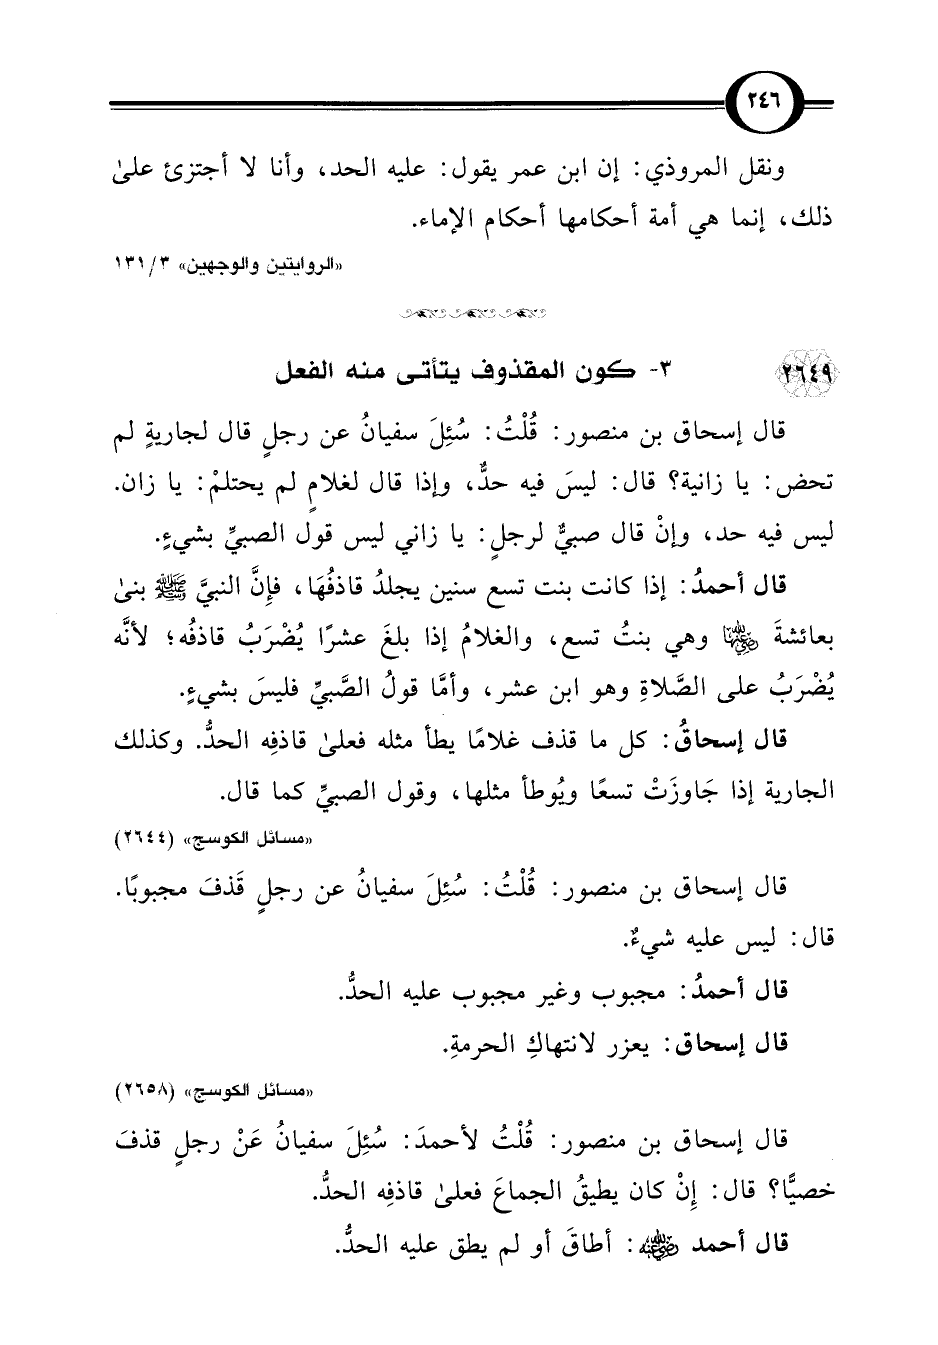 ٢٤٦
ونقل المروذي: إن ابن عمر يقول: عليه الحد، وأنا لا أجتزئ علىٰ
ذلك، إنما هي أمة أحكامها أحكام الإماء.
«الروايتين والوجهين» ٣/ ١٣١
٢٦٤٩ ٣- كون المقذوف يتأتى منه الفعل
قال إسحاق بن منصور: قُلْتُ: سُئِلَ سفيانُ عن رجلٍ قال لجاريةٍ لم
تحض: يا زانية؟ قال: ليسَ فيه حدٌّ، وإذا قال لغلامٍ لم يحتلمْ: يا زان.
ليس فيه حد، وإنْ قال صبيٌّ لرجلٍ: يا زاني ليس قول الصبيِّ بشيءٍ.
قال أحمدُ: إذا كانت بنت تسع سنين يجلدُ قاذفُهَا، فإنَّ النبيَّ ﷺ بنىٰ
بعائشةَ رضي الله عنها وهي بنتُ تسع، والغلامُ إذا بلغَ عشرًا يُضْرَبُ قاذفُه؛ لأنَّه
يُضْرَبُ على الصَّلاةِ وهو ابن عشر، وأمَّا قولُ الصَّبيِّ فليسَ بشيءٍ.
قال إسحاقُ: كل ما قذف غلامًا يطأ مثله فعلىٰ قاذفِه الحدُّ. وكذلك
الجارية إذا جَاوزَتْ تسعًا ويُوطأ مثلها، وقول الصبيِّ كما قال.
«مسائل الكوسج» (٢٦٤٤)
قال إسحاق بن منصور: قُلْتُ: سُئِلَ سفيانُ عن رجلٍ قَذفَ مجبوبًا.
قال: ليس عليه شيءٌ.
قال أحمدُ: مجبوب وغير مجبوب عليه الحدُّ.
قال إسحاق: يعزر لانتهاكِ الحرمةِ.
«مسائل الكوسج» (٢٦٥٨)
قال إسحاق بن منصور: قُلْتُ لأحمدَ: سُئِلَ سفيانُ عَنْ رجلٍ قذفَ
خصيًّا؟ قال: إنْ كان يطيقُ الجماعَ فعلىٰ قاذفِه الحدُّ.
قال أحمد رضي الله عنه: أطاقَ أو لم يطق عليه الحدُّ.